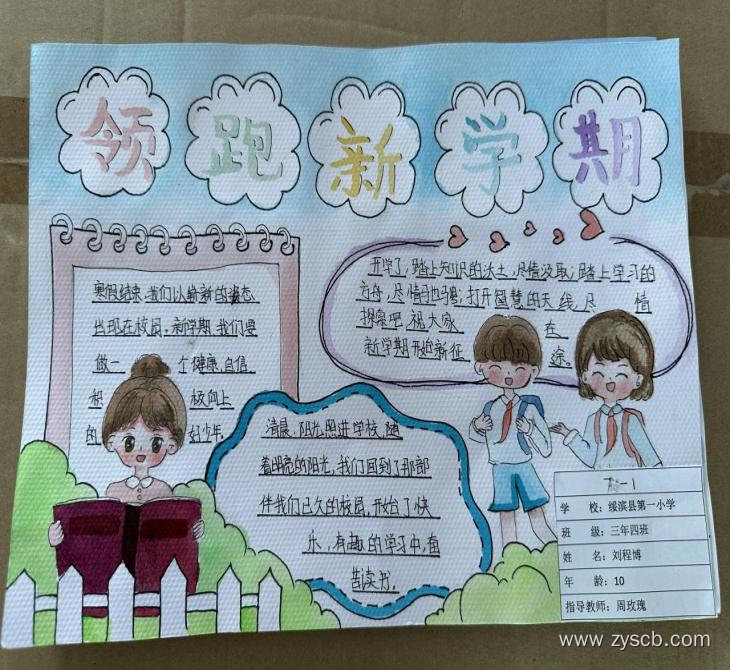 领跑新学期
寒假结束,我们以崭新的姿态
出现在校园。新学期,我们要
做一 个健康,自信
积 极向上
的 好少年。
开学了,踏上知识的沃土,尽情汲取;踏上学习的
方舟,尽情驰骋,打开智慧的天线,尽 情
探索吧,祝大家 在
新学期开始新征 途。
清晨,阳光照进学校,随
着明亮的阳光,我们回到了那部
伴我们已久的校园,开始了快
乐,有趣的学习中,
读书。
学 校:绥滨县第一小学
班 级:三年四班
姓 名:刘程博
年 龄:10
指导教师:周玫瑰
www.zyscb.com